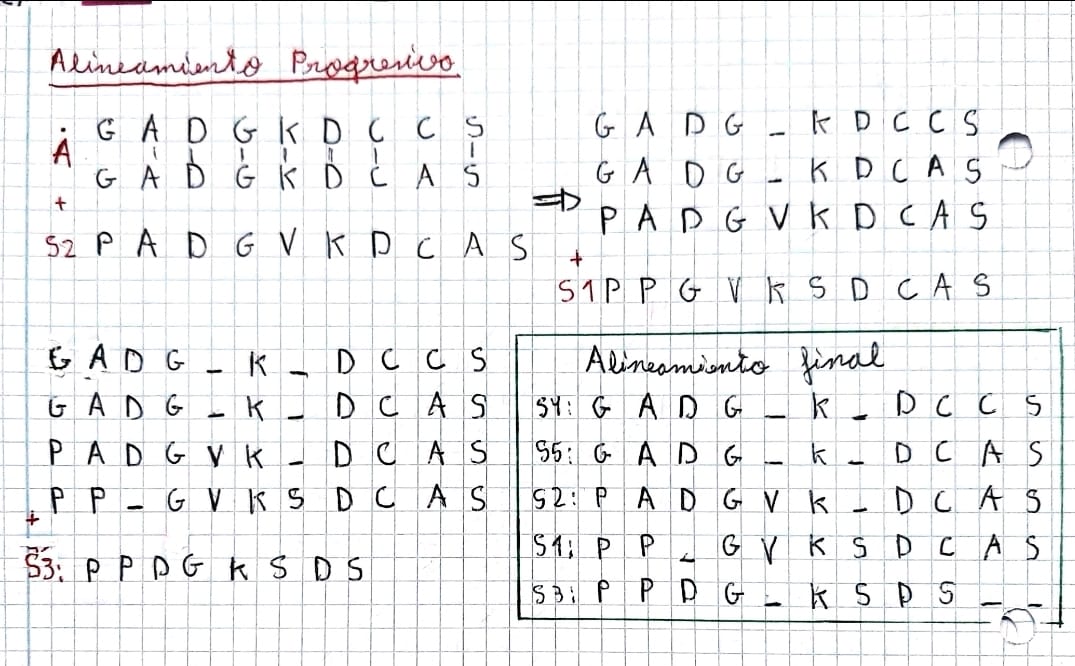 Alineamiento Progresivo
A G A D G K D C C S
G A D G K D C A S
+
S2 P A D G V K D C A S
⇒
G A D G _ K D C C S
G A D G _ K D C A S
P A D G V K D C A S
+
S1 P P G V K S D C A S
G A D G _ K _ D C C S
G A D G _ K _ D C A S
P A D G V K _ D C A S
P P _ G V K S D C A S
+
S3: P P D G K S D S
Alineamiento final
S4: G A D G _ K _ D C C S
S5: G A D G _ K _ D C A S
S2: P A D G V K _ D C A S
S1: P P _ G V K S D C A S
S3: P P D G _ K S D S _ _